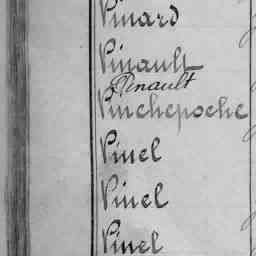 Pinard
Pinault
Pinault
Pinchepoche
Pinel
Pinel
Pinel